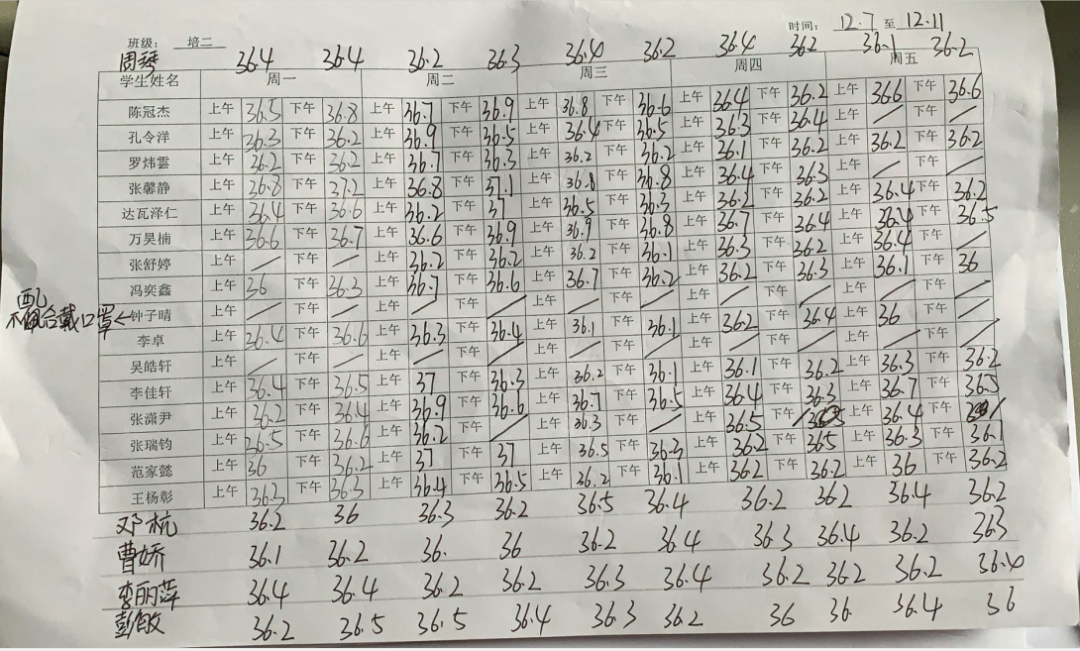 时间： 12.7 至 12.11
班级： 培二
周琴 36.4 36.4 36.2 36.3 36.4 36.2 36.4 36.2 36.1 36.2
学生姓名 周一 周二 周三 周四 周五
陈冠杰 上午 36.5 下午 36.8 上午 36.7 下午 36.9 上午 36.8 下午 36.6 上午 36.4 下午 36.2 上午 36.6 下午 36.6
孔令洋 上午 36.3 下午 36.2 上午 36.9 下午 36.5 上午 36.4 下午 36.5 上午 36.3 下午 36.4 上午 / 下午 /
罗炜雲 上午 36.2 下午 36.2 上午 36.7 下午 36.3 上午 36.2 下午 36.2 上午 36.1 下午 36.2 上午 36.2 下午 36.2
张馨静 上午 26.8 下午 37.2 上午 36.8 下午 37.1 上午 36.8 下午 36.8 上午 36.4 下午 36.3 上午 / 下午 /
达瓦泽仁 上午 36.4 下午 36.6 上午 36.2 下午 37 上午 36.5 下午 36.3 上午 36.2 下午 36.2 上午 36.4 下午 36.2
万昊楠 上午 36.6 下午 36.7 上午 36.6 下午 36.9 上午 36.9 下午 36.8 上午 36.7 下午 36.4 上午 36.4 下午 36.5
张舒婷 上午 / 下午 / 上午 36.2 下午 36.2 上午 36.2 下午 36.1 上午 36.3 下午 36.2 上午 36.4 下午 /
冯奕鑫 上午 36 下午 36.3 上午 36.7 下午 36.6 上午 36.7 下午 36.2 上午 36.2 下午 36.3 上午 36.1 下午 36
配
不合戴口罩← 钟子晴 上午 / 下午 / 上午 / 下午 / 上午 / 下午 / 上午 / 下午 / 上午 / 下午 /
李卓 上午 36.4 下午 36.6 上午 36.3 下午 36.4 上午 36.1 下午 36.1 上午 36.2 下午 36.4 上午 36 下午 /
吴皓轩 上午 / 下午 / 上午 / 下午 / 上午 / 下午 / 上午 / 下午 / 上午 / 下午 /
李佳轩 上午 36.4 下午 36.5 上午 37 下午 36.3 上午 36.2 下午 36.1 上午 36.1 下午 36.2 上午 36.3 下午 36.2
张潇尹 上午 36.2 下午 36.4 上午 36.9 下午 36.6 上午 36.7 下午 36.5 上午 36.4 下午 36.3 上午 36.7 下午 36.5
张瑞钧 上午 36.5 下午 36.6 上午 36.2 下午 / 上午 36.3 下午 / 上午 36.5 下午 上午 36.4 下午
范家懿 上午 36 下午 36.2 上午 37 下午 37 上午 36.5 下午 36.3 上午 36.2 下午 36.5 上午 36.3 下午 36.1
王杨彰 上午 36.3 下午 36.3 上午 36.4 下午 36.5 上午 36.2 下午 36.1 上午 36.2 下午 36.2 上午 36 下午 36.2
邓杭 36.2 36 36.3 36.2 36.5 36.4 36.2 36.2 36.4 36.2
曹娇 36.1 36.2 36. 36 36.2 36.4 36.3 36.4 36.2 36.3
李丽萍 36.4 36.4 36.2 36.2 36.3 36.4 36.2 36.2 36.2 36.40
彭敏 36.2 36.5 36.5 36.4 36.3 36.2 36 36 36.4 36